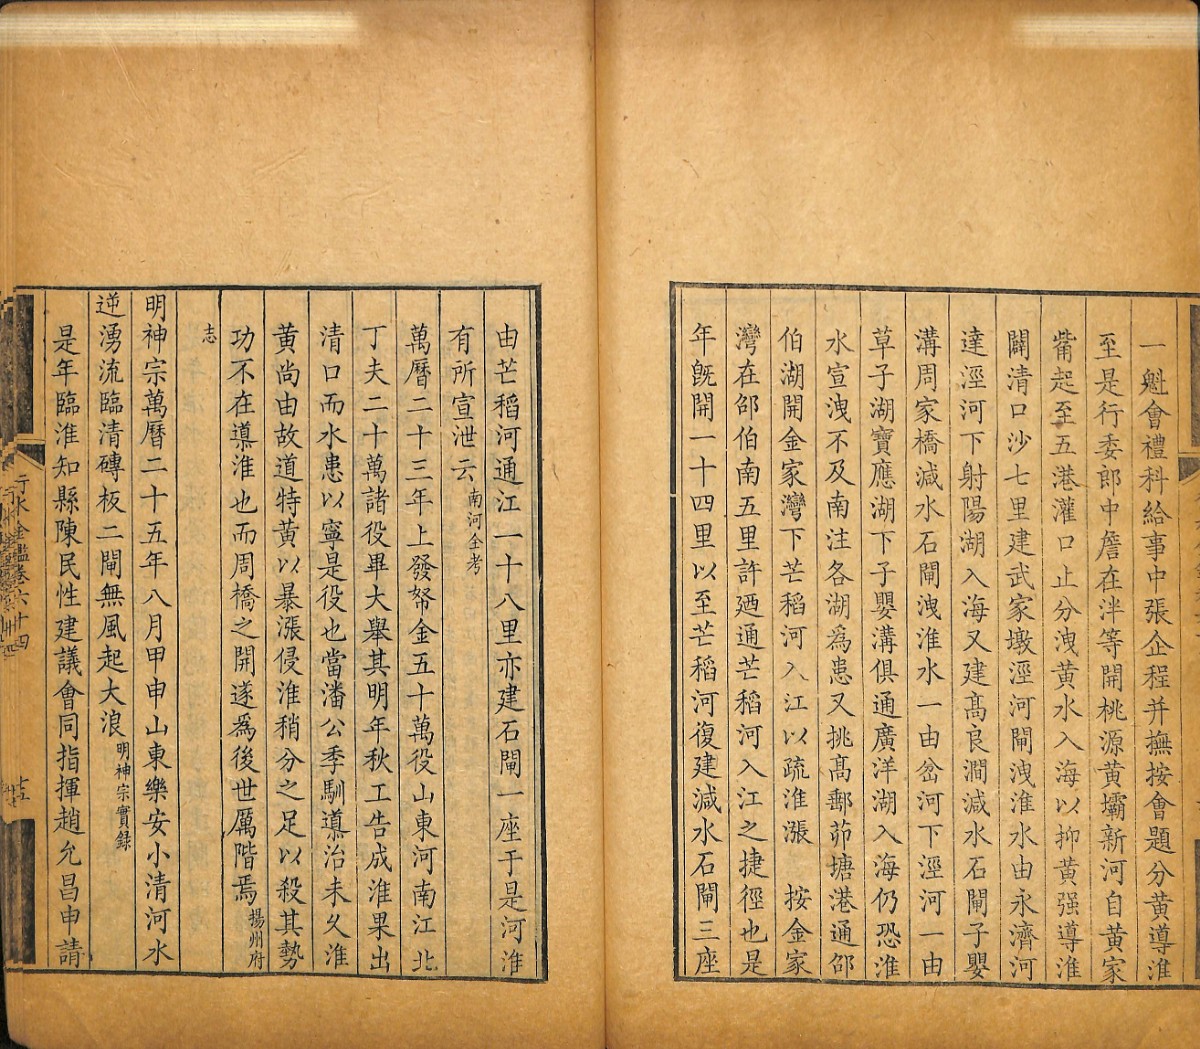 一魁會禮科給事中張企程并撫按會題分黃導淮
至是行委郎中詹在泮等開桃源黃壩新河自黃家
嘴起至五港灌口止分洩黃水入海以抑黃强導淮
闢清口沙七里建武家墩涇河閘洩淮水由永濟河
達涇河下射陽湖入海又建髙良澗減水石閘子嬰
溝周家橋減水石閘洩淮水一由岔河下涇河一由
草子湖寶應湖下子嬰溝俱通廣洋湖入海仍恐淮
水宣洩不及南注各湖爲患又挑髙郵茆塘港通邵
伯湖開金家灣下芒稻河入江以疏淮漲 按金家
灣在邵伯南五里許廼通芒稻河入江之捷徑也是
年旣開一十四里以至芒稻河復建減水石閘三座
由芒稻河通江一十八里亦建石閘一座于是河淮
有所宣泄云南河全考
萬曆二十三年上發帑金五十萬役山東河南江北
丁夫二十萬諸役畢大舉其明年秋工告成淮果出
清口而水患以寧是役也當潘公季馴導治未乆淮
黃尚由故道特黃以暴漲侵淮稍分之足以殺其勢
功不在導淮也而周橋之開遂爲後世厲階焉揚州府
志
明神宗萬曆二十五年八月甲申山東樂安小清河水
逆湧流臨清磚板二閘無風起大浪明神宗實録
是年臨淮知縣陳民性建議會同指揮趙允昌申請
行水金鑑卷六十四